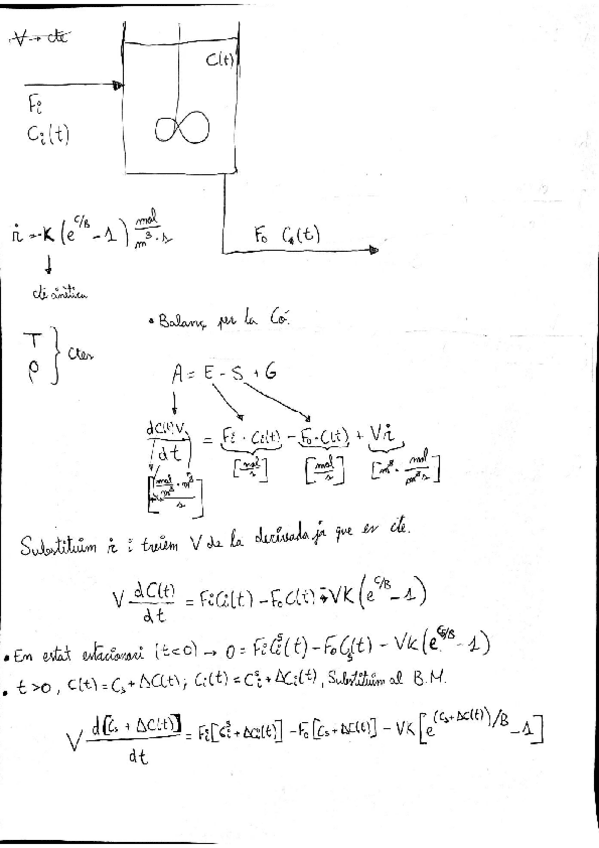 V → cte
C(t)
Fi
Ci(t)
r = -K (e^{C/B} - 1) mol/m³·s
cte cinètica
Fo Co(t)
T
ρ } ctes
• Balanç per la Có.
A = E - S + G
dC(t)V/dt = Fi · Ci(t) - Fo · C(t) + Vr
[mol/m³ · m³/s] [mol/s] [mol/s] [m³ · mol/m³s]
Substituïm r i treiem V de la derivada ja que és cte.
V dC(t)/dt = FiCi(t) - FoC(t) - VK(e^{C/B} - 1)
• En estat estacionari (t<0) → 0 = FiCi^s(t) - FoCs(t) - VK(e^{Cs/B} - 1)
• t>0, C(t) = Cs + ΔC(t); Ci(t) = Ci^s + ΔCi(t), Substituïm al B.M.
V d[Cs + ΔC(t)]/dt = Fi[Ci^s + ΔCi(t)] - Fo[Cs + ΔC(t)] - VK[e^{(Cs+ΔC(t))/B} - 1]